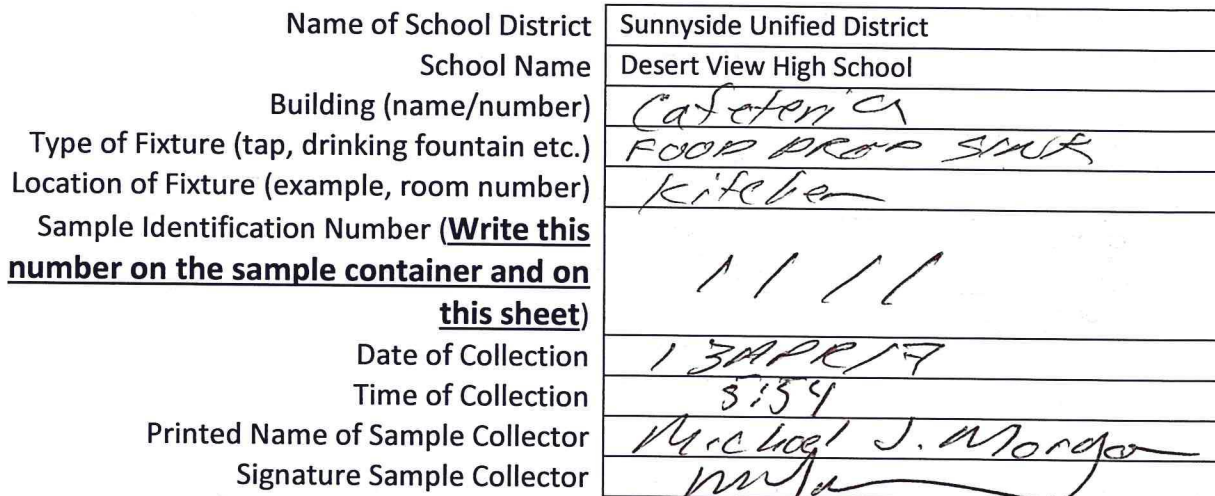 Name of School District Sunnyside Unified District
School Name Desert View High School
Building (name/number) Cafeteria
Type of Fixture (tap, drinking fountain etc.) FOOD PREP SINK
Location of Fixture (example, room number) Kitchen
Sample Identification Number (Write this
number on the sample container and on
this sheet)
1111
Date of Collection 13APR17
Time of Collection 5:54
Printed Name of Sample Collector Michael J. Morgan
Signature Sample Collector